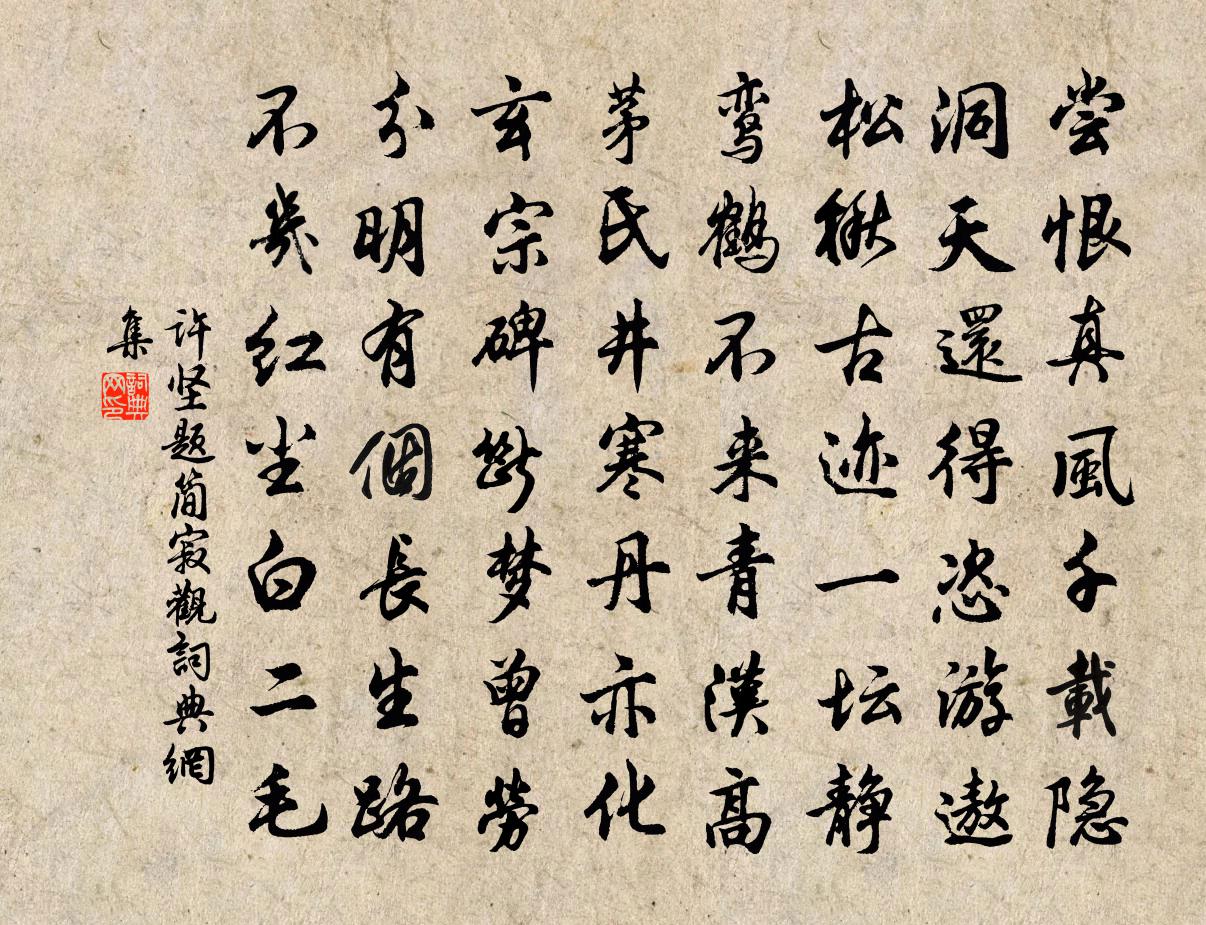 尝恨真風千載隐
洞天還得恣游遨
松楸古迹一坛静
鸾鶴不来青漢高
茅氏井寒丹亦化
玄宗碑斷梦曾勞
分明有個長生路
不幾红尘白二毛
许坚题简寂觀詞典網
集
詞典
网印